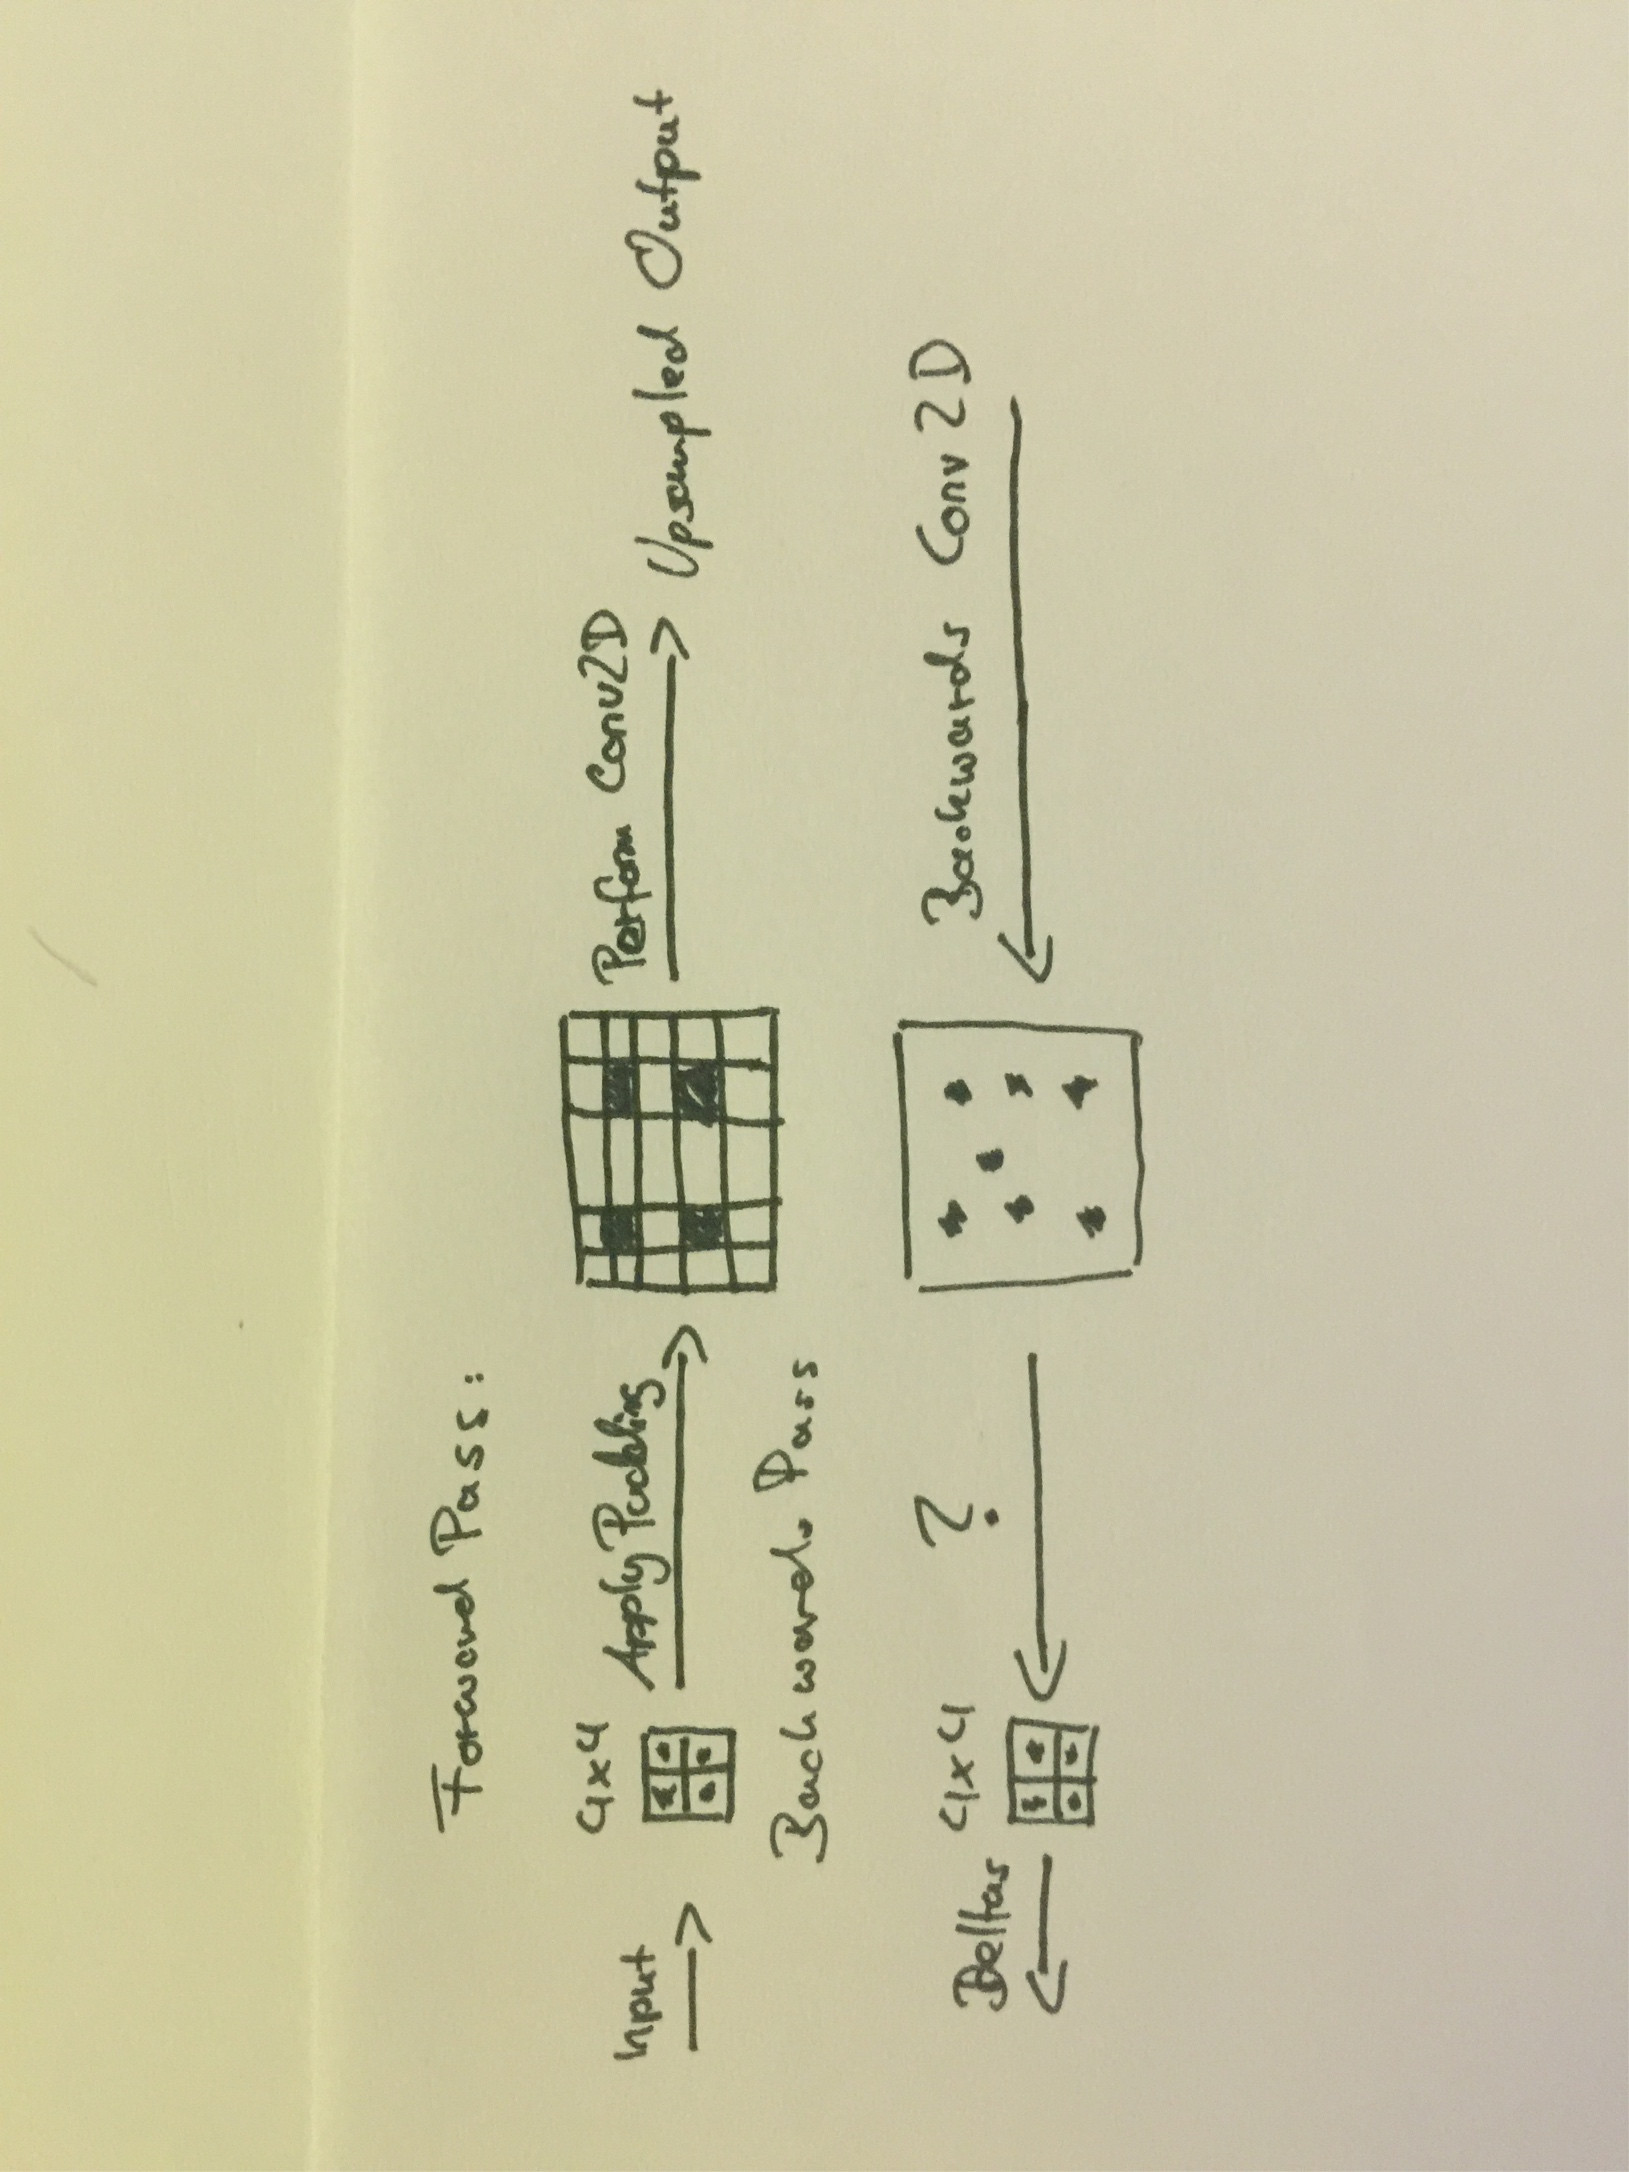 Forward Pass:
Input 4x4 Apply Padding Perform Conv2D Upsampled Output
Backwards Pass
Deltas 4x4 ? Backwards Conv2D